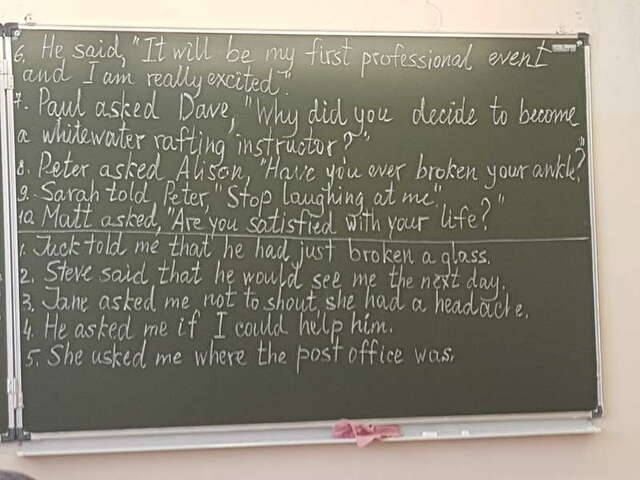 6. He said, "It will be my first professional event
and I am really excited".
7. Paul asked Dave, "Why did you decide to become
a whitewater rafting instructor?"
8. Peter asked Alison, "Have you ever broken your ankle?"
9. Sarah told Peter, "Stop laughing at me".
10. Matt asked, "Are you satisfied with your life?"
1. Jack told me that he had just broken a glass.
2. Steve said, that he would see me the next day.
3. Jane asked me not to shout, she had a headache.
4. He asked me if I could help him.
5. She asked me where the post office was.